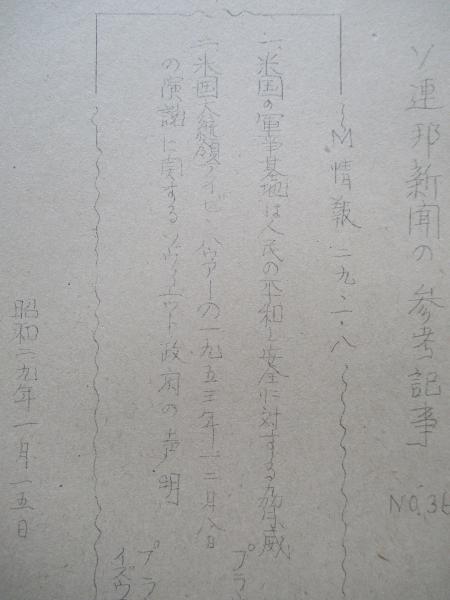 ソ連邦新聞の参考記事
NO.36
M情報 二九・二・八
一、米国の軍事基地は人民の平和と安全に対する脅威
プラ
二、米国大統領アイゼンハウアーの一九五三年一二月八日
の演説に関するソヴィエット政府の声明
プラ
イズヴ
昭和二九年一月一五日